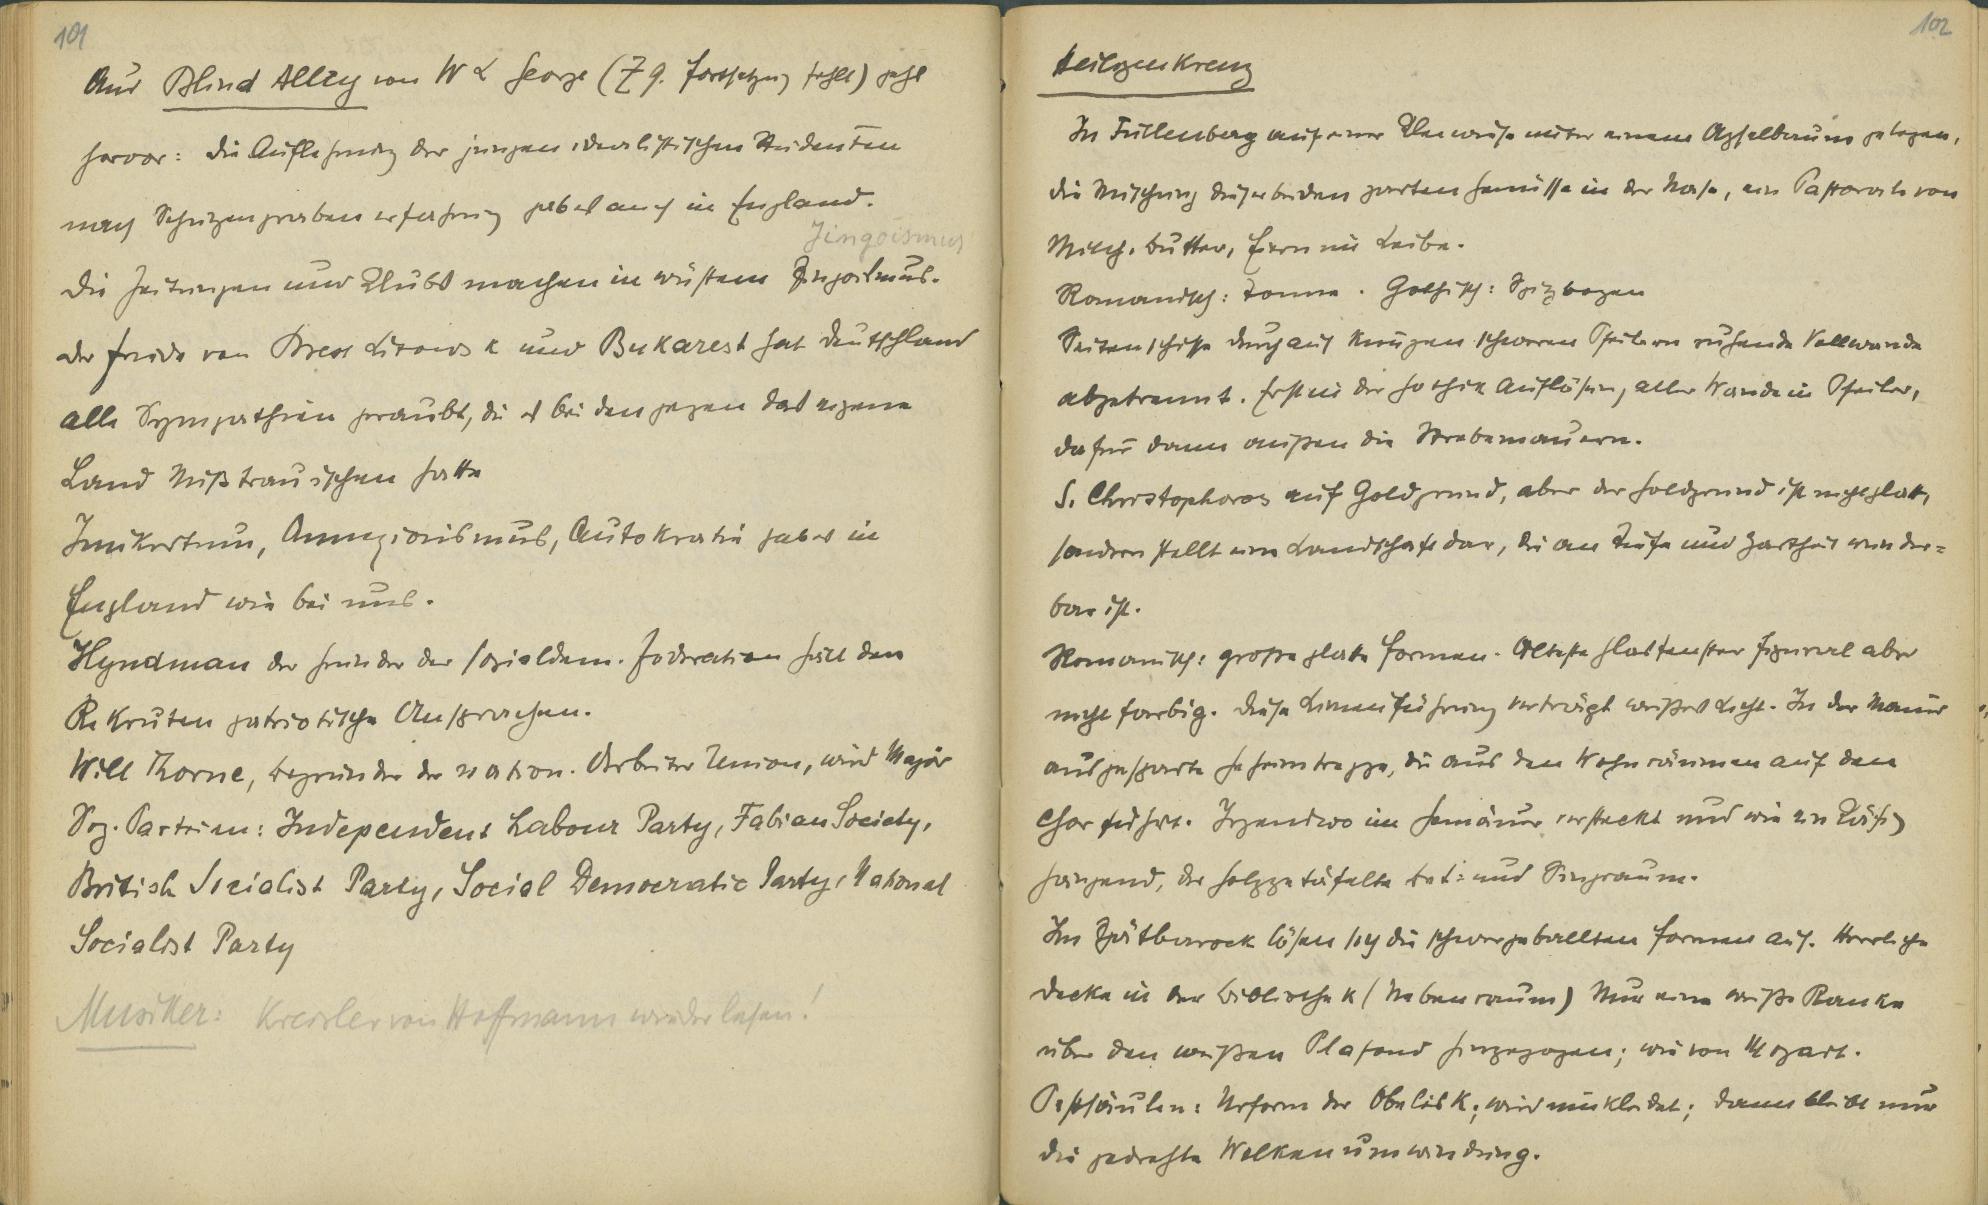 101
Aus Blind Alley von W L George (Z 9. Fortsetzung fehlt) geht
hervor: die Auflehnung der jungen idealistischen Studenten
nach Schützengrabenerfahrung gab es auch in England.
Jingoismus
Die Zeitungen und Clubs machen in wüstem Jingoismus.
Der Friede von Brest Litowsk und Bukarest hat Deutschland
alle Sympathien geraubt, die es bei den gegen das eigene
Land Mißtrauischen hatte
Junkertum, Annexionismus, Autokratie gab es in
England wie bei uns.
Hyndman der Gründer der sozialdem. Föderation hält den
Rekruten patriotische Ansprachen.
Will Thorne, Begründer der nation. Arbeiter Union, wird Major
Soz. Parteien: Independent Labour Party, Fabian Society,
British Socialist Party, Social Democratic Party, National
Socialist Party
Musiker: Kreisler von Hoffmann wieder lesen!
102
Heiligenkreuz
In Füllenberg auf einer Kleewiese unter einem Apfelbaum gelegen,
die Mischung dieser beiden zarten Genüsse in der Nase, ein Pastorale von
Milch, Butter, Eiern im Leibe.
Romanisch: Tonne. Gothisch: Spitzbogen
Seitenschiffe durch auf knuffigen schweren Pfeilern ruhende Vollwände
abgetrennt. Erst in der Gothik Auflösung aller Wände in Pfeiler,
dafür dann außen die Strebemauern.
S. Christophorus auf Goldgrund, aber der Goldgrund ist nicht glatt,
sondern stellt eine Landschaft dar, die an Tiefe und Zartheit wunder=
bar ist.
Romanisch: große glatte Formen. Älteste Glasfenster figural aber
nicht farbig. Diese Linienführung verträgt weißes Licht. In der Mauer
ausgesparte Geheimtreppe, die aus den Wohnräumen auf den
Chor führt. Irgendwo im Gemäuer versteckt und wie ein Käfig
hängend, der holzgetäfelte Bet= und Singraum.
Im Spätbarock lösen sich die schwergeballten Formen auf. Herrliche
Decke in der Bibliothek (Nebenraum) Nur eine weiße Ranke
über den weißen Plafond hingezogen; wie von Mozart.
Pestsäulen: Urform der Obelisk; wird umkleidet; dann bleibt nur
die gedrehte Wolkenumwindung.